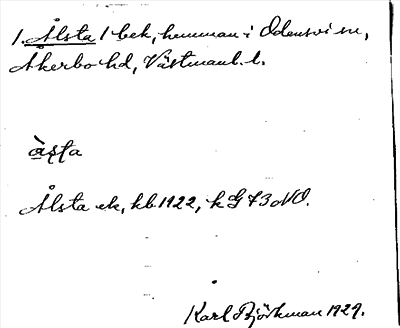 1. Ålsta 1 bek, hemman i Odensvi sn,
Åkerbo hd, Västmanl. l.
àsta
Ålsta ek, kb 1922, k G 73 NO.
Karl Björkman 1929.